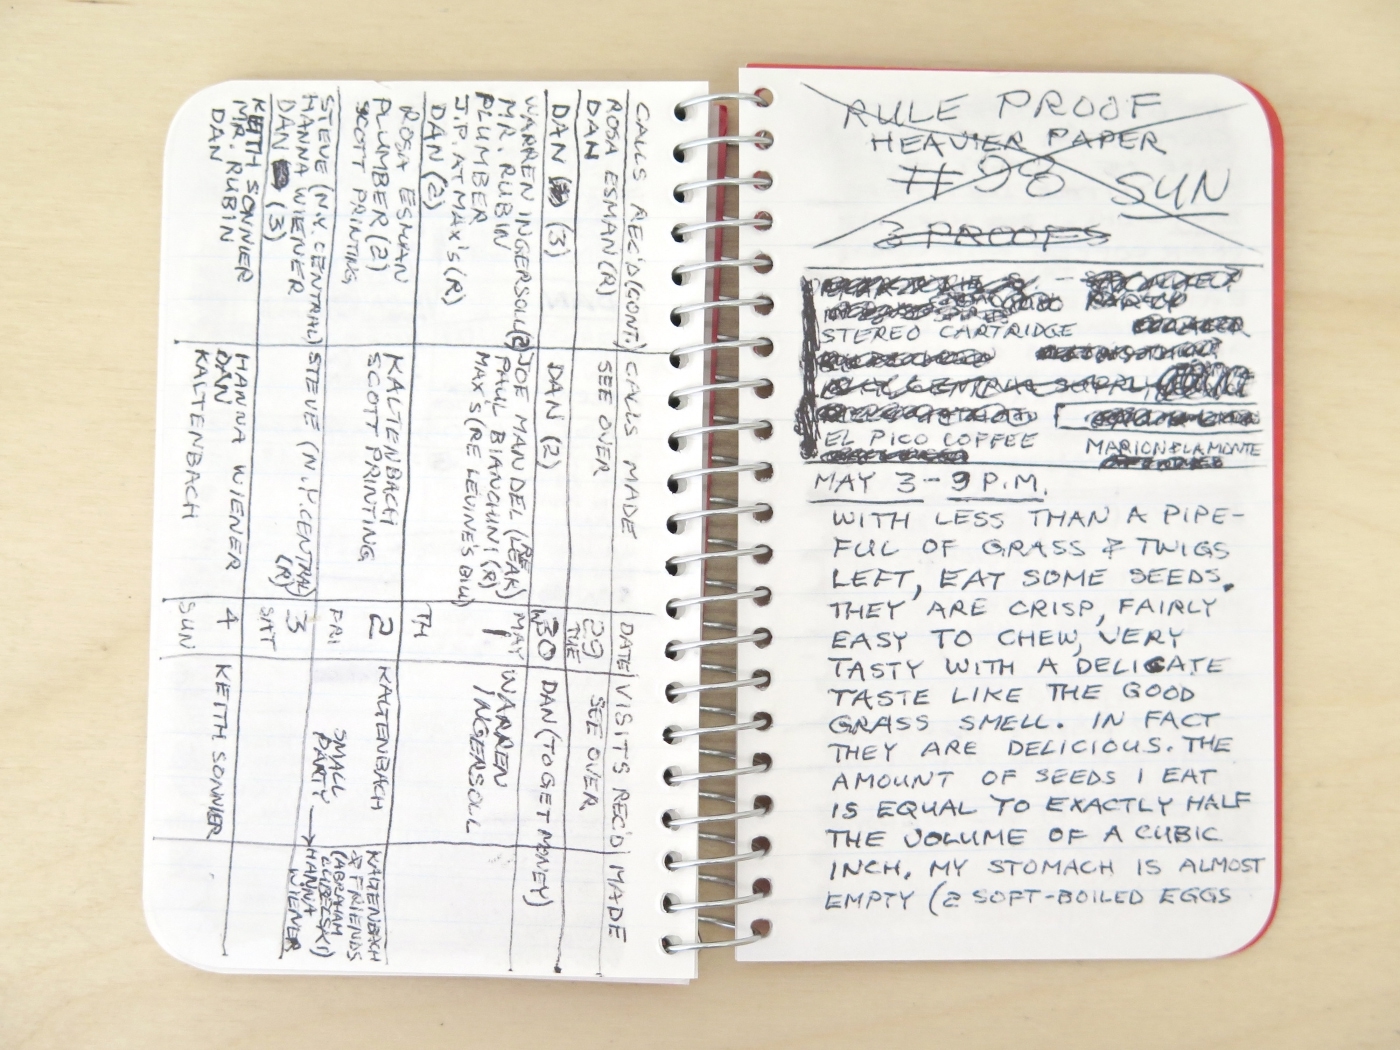 CALLS REC'D (CONT.) CALLS MADE DATE VISITS REC'D MADE
ROSA ESMAN (R) SEE OVER 29 SEE OVER
DAN THE
DAN (3) DAN (2) 30 DAN (TO GET MONEY)
W
WARREN INGERSOLL (2) JOE MANDEL (RE LEAK) MAY WARREN
MR. RUBIN PAUL BIANCHINI (R) 1 INGERSOLL
PLUMBER MAX'S (RE LEVINES BILL)
J.P. AT MAX'S (R)
DAN (2) TH
ROSA ESMAN KALTENBACH 2 KALTENBACH KALTENBACH
PLUMBER (2) SCOTT PRINTING & FRIENDS
SCOTT PRINTING FRI SMALL (ABRAHAM
PARTY → LUBELSKI)
STEVE (N.Y. CENTRAL) STEVE (N.Y. CENTRAL) 3 HANNA
HANNA WIENER (R) WIENER
DAN (3) SAT
KEITH SONNIER HANNA WIENER 4 KEITH SONNIER
MR. RUBIN DAN
DAN KALTENBACH SUN
RULE PROOF
HEAVIER PAPER
#98 SUN
3 PROOFS
STEREO CARTRIDGE
EL PICO COFFEE MARION & LAMONTE
MAY 3 - 9 P.M.
WITH LESS THAN A PIPE-
FUL OF GRASS & TWIGS
LEFT, EAT SOME SEEDS.
THEY ARE CRISP, FAIRLY
EASY TO CHEW, VERY
TASTY WITH A DELICATE
TASTE LIKE THE GOOD
GRASS SMELL. IN FACT
THEY ARE DELICIOUS. THE
AMOUNT OF SEEDS I EAT
IS EQUAL TO EXACTLY HALF
THE VOLUME OF A CUBIC
INCH. MY STOMACH IS ALMOST
EMPTY (2 SOFT-BOILED EGGS